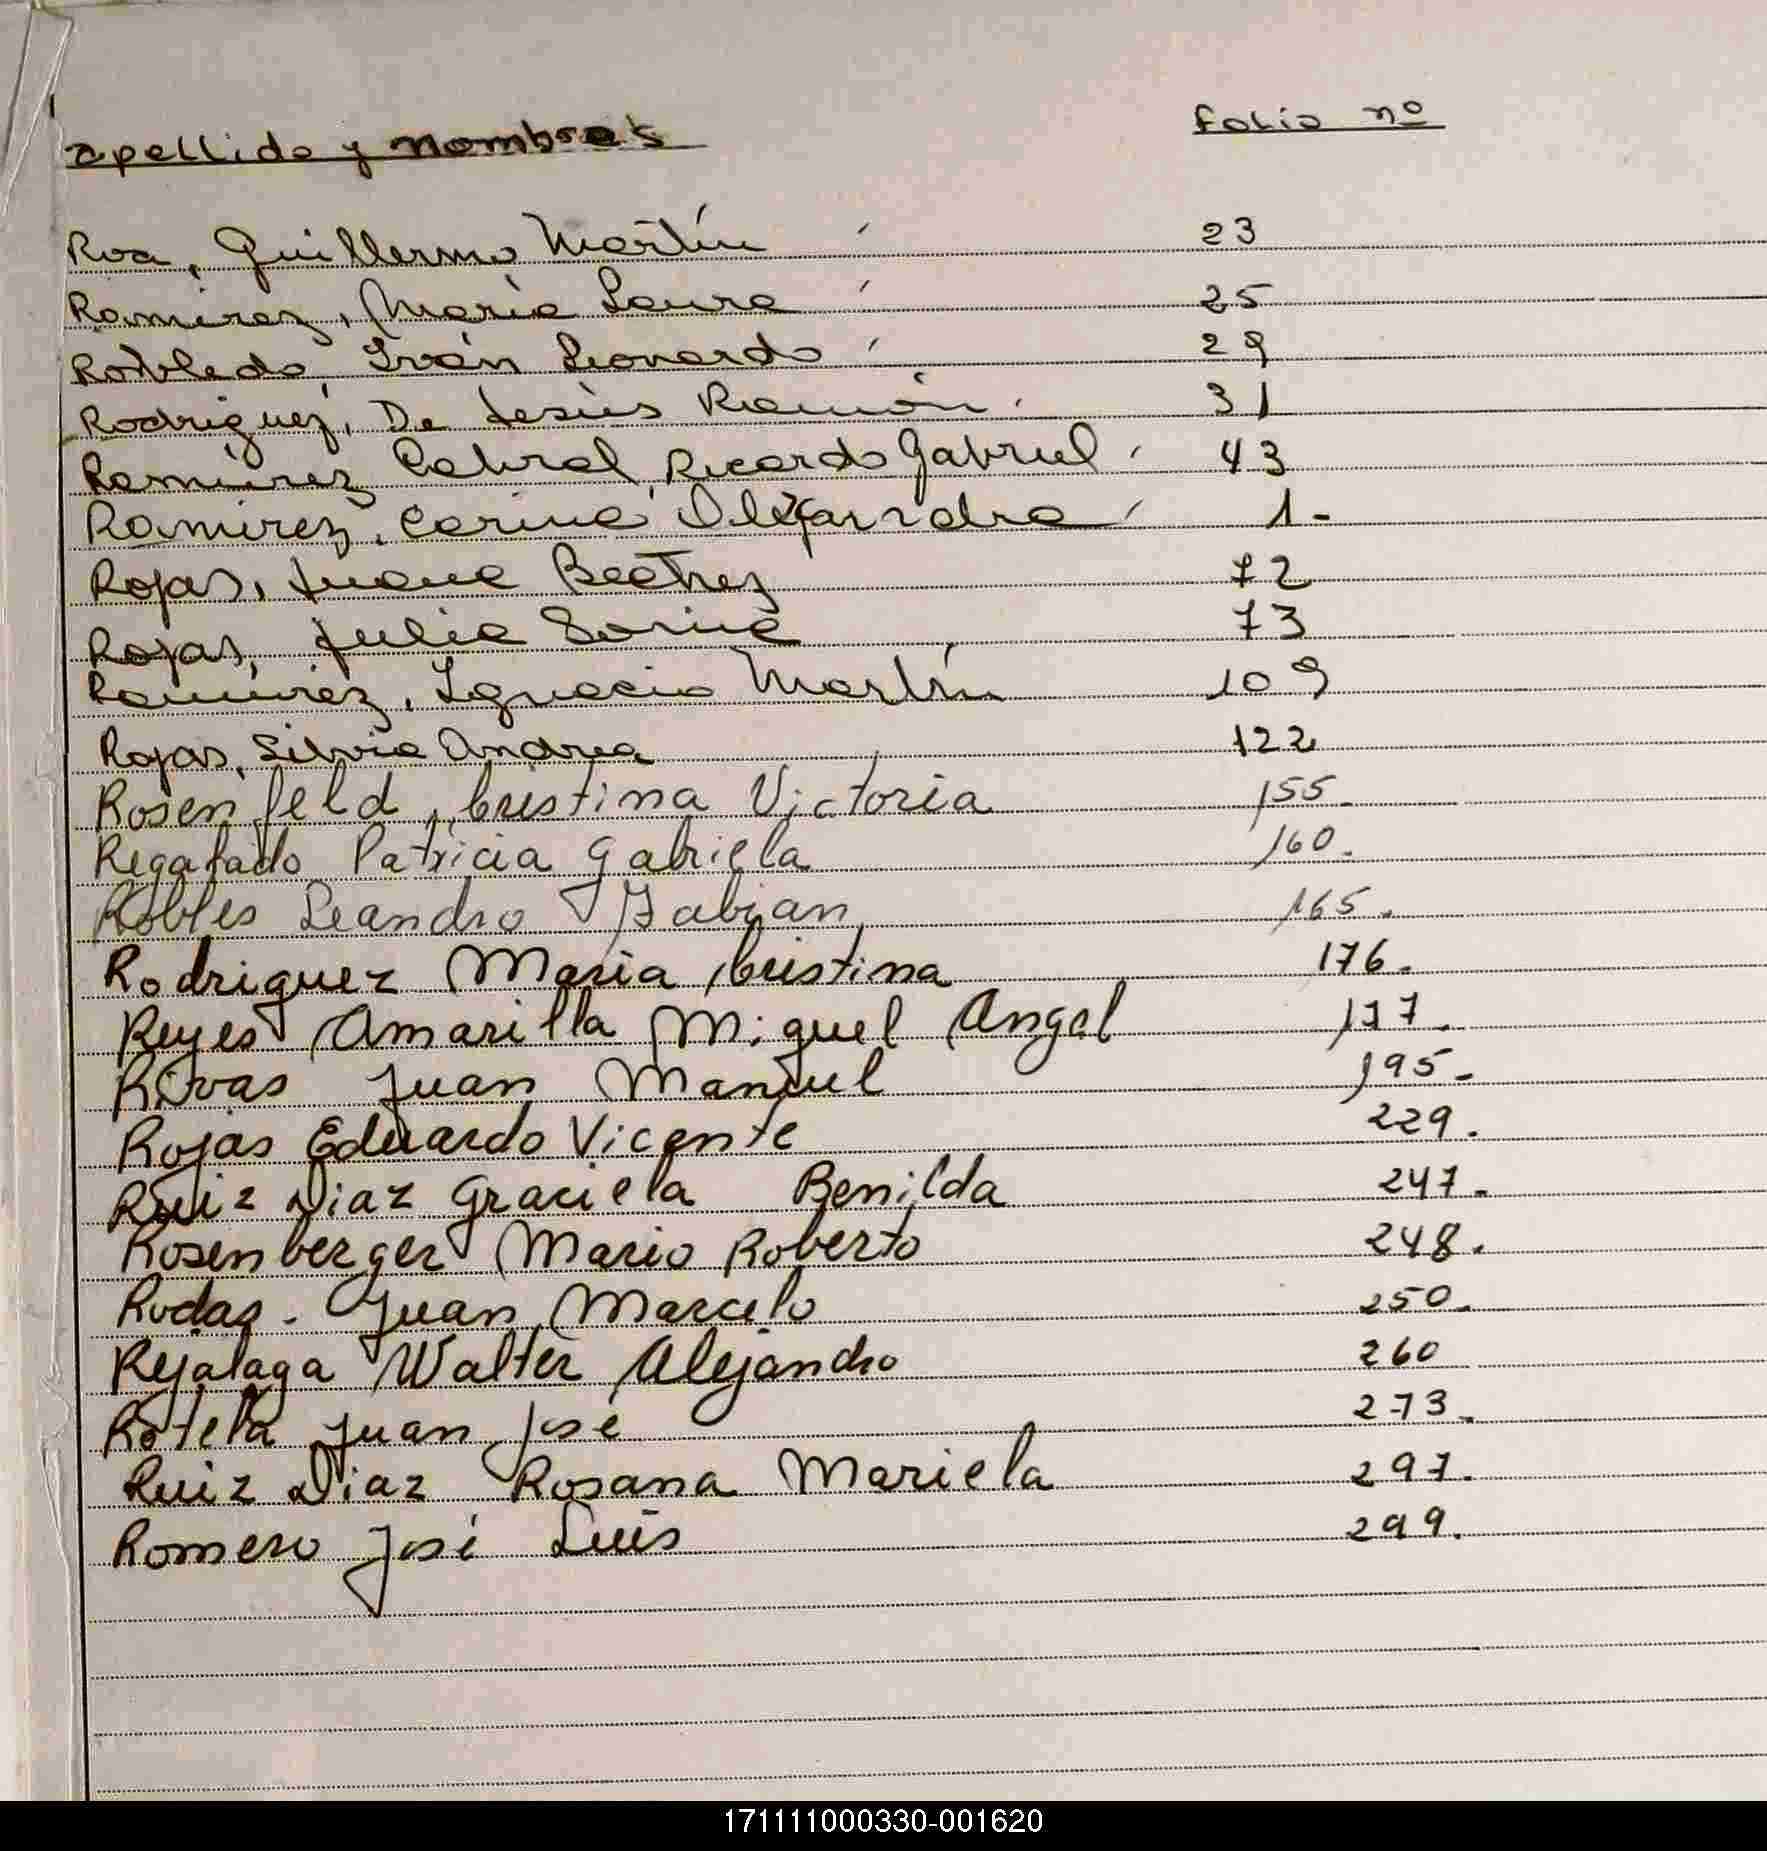 apellido y nombres folio nº
Roa, Guillermo Martín 23
Ramirez, Maria Laura 25
Robledo, Iván Leonardo 29
Rodriguez, De Jesús Ramón. 31
Ramirez Cabral, Ricardo Gabriel 43
Ramirez, Carina Alejandra 1-
Rojas, Juana Beatriz 72
Rojas, Julia Sonia 73
Ramirez, Ignacio Martín 109
Rojas, Silvia Andrea 122
Rosenfeld, Cristina Victoria 155.
Regafado Patricia Gabriela 160.
Robles Leandro Fabian 165.
Rodriguez Maria Cristina 176.
Reyes Amarilla Miguel Angel 177.
Rivas Juan Manuel 195-
Rojas Eduardo Vicente 229.
Ruiz Diaz Graciela Benilda 247.
Rosenberger Mario Roberto 248.
Rodas. Juan Marcelo 250.
Rejalaga Walter Alejandro 260
Rotela Juan José 273.
Ruiz Diaz Rosana Mariela 297.
Romero José Luis 299.
171111000330-001620